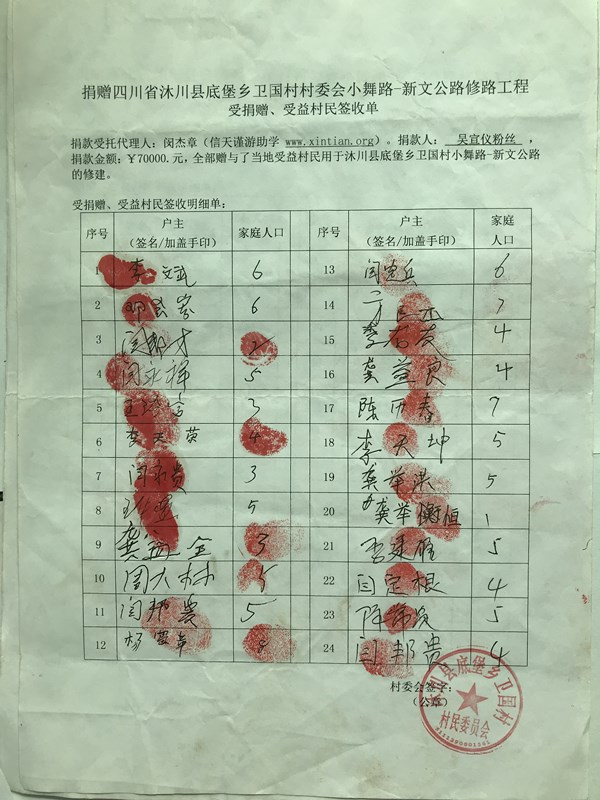 捐赠四川省沐川县底堡乡卫国村村委会小舞路-新文公路修路工程
受捐赠、受益村民签收单
捐款受托代理人：闵杰章（信天谨游助学 www.xintian.org）。捐款人： 吴宣仪粉丝 ，
捐款金额：¥70000.元，全部赠与了当地受益村民用于沐川县底堡乡卫国村小舞路-新文公路
的修建。
受捐赠、受益村民签收明细单：
序号 户主（签名/加盖手印） 家庭人口 序号 户主（签名/加盖手印） 家庭人口
1 李文武 6 13 闫宪兵 6
2 6 14 7
3 2 15 李右友 4
4 闵永祥 5 16 龚益良 4
5 3 17 陈历春 7
6 李天英 4 18 李天坤 5
7 闫永贵 3 19 龚举洪 5
8 5 20 龚举衡 恒 1
9 龚 全 3 21 5
10 周大林 5 22 闫定根 4
11 闫邦贵 5 23 5
12 杨 24 闫邦贵 4
村委会签字：
（公章）
沐川县底堡乡卫国村
村民委员会